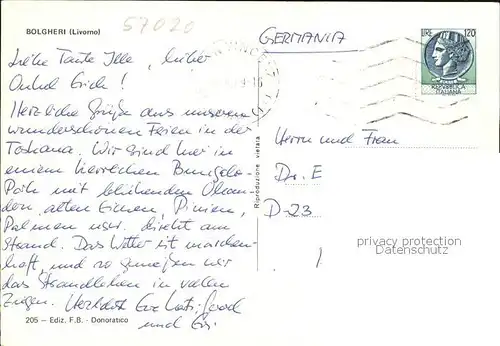 BOLGHERI (Livorno)
57020
GERMANIA
LIRE 120
REPVBBLICA
ITALIANA
Liebe Tante Ille, lieber
Onkel Erich!
Herzliche Grüße aus unseren
wunderschönen Ferien in der
Toskana. Wir sind hier in
einem herrlichen Bungalo-
Park mit blühenden Olean-
dern, alten Eichen, Pinien,
Palmen usw. direkt am
Strand. Das Wetter ist märchen-
haft, und so genießen wir
das Strandleben in vollen
Zügen. Herzlichst
und
205 — Ediz. F.B. - Donoratico
Riproduzione vietata
Herrn und Frau
Dr. E
D-23
privacy protection
Datenschutz